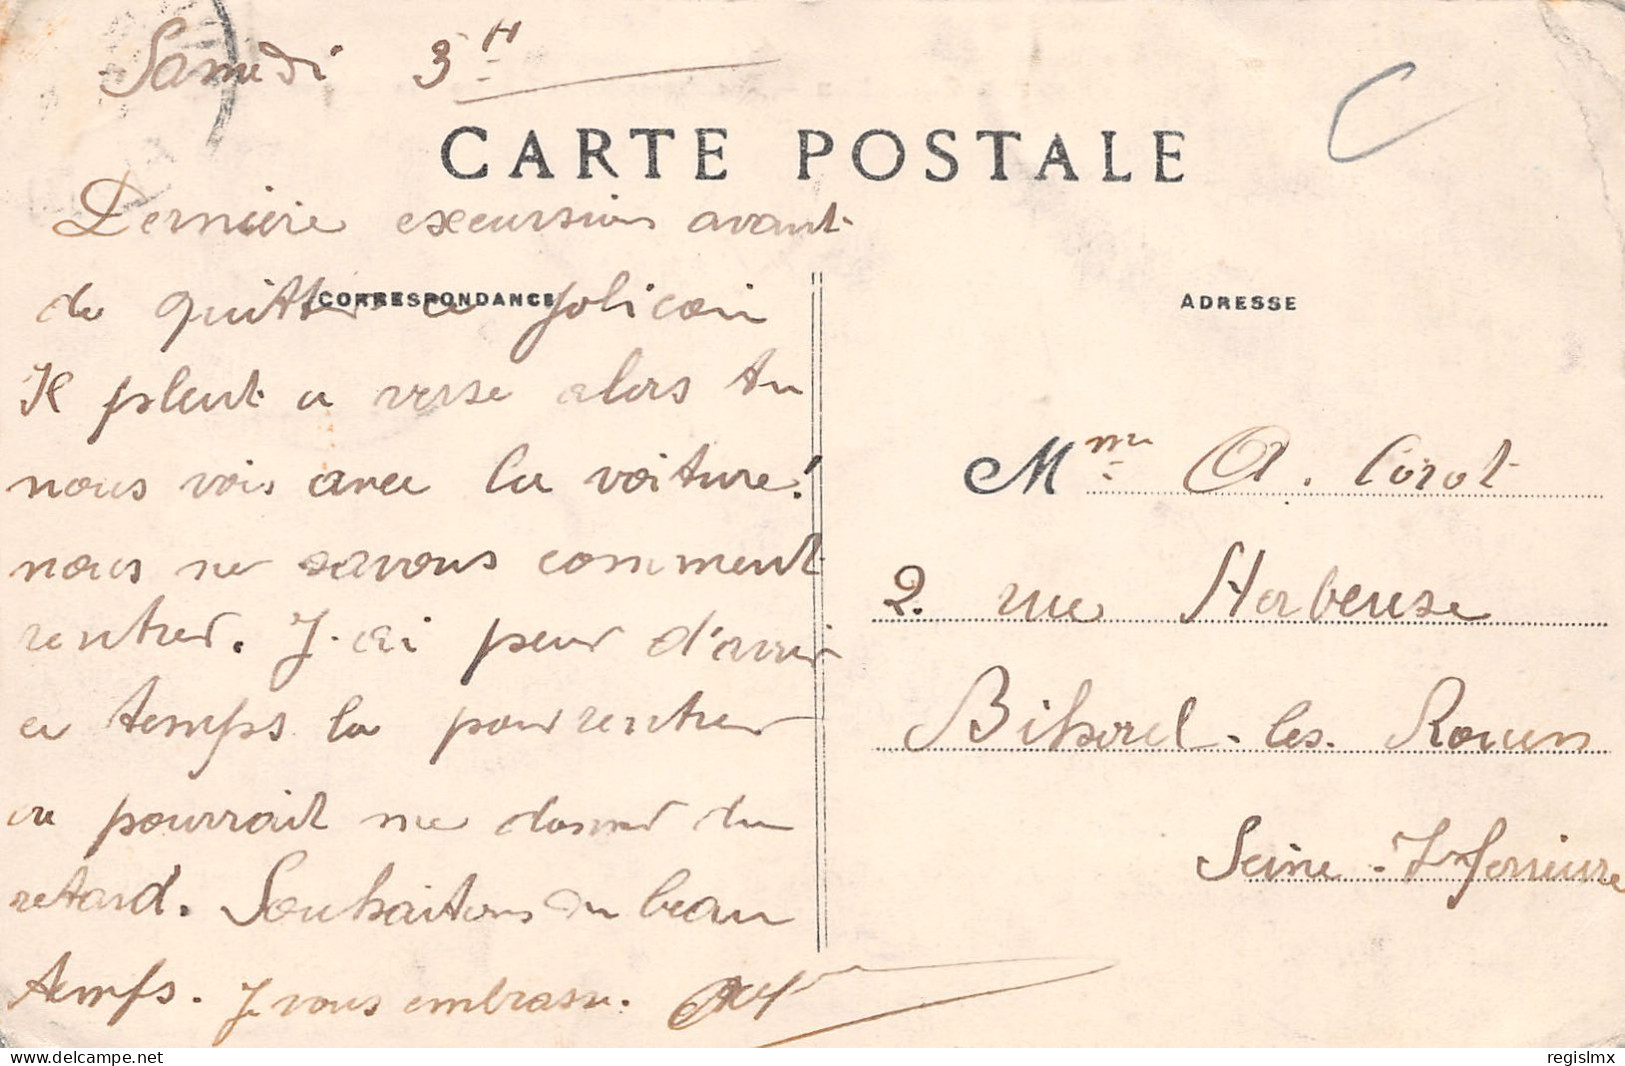 Samedi 3H
CARTE POSTALE
C
Dernière excursion avant
de quitter ce joli coin
CORRESPONDANCE
Il pleut a verse alors tu
nous vois avec la voiture!
nous ne savons comment
rentrer. J'ai peur d'avoir
ce temps la pour rentrer
ça pourrait me donner du
retard. Souhaitons du beau
temps. Je vous embrasse.
ADRESSE
Mme A. Corot
2. rue Herbeuse
Bihorel-les-Rouen
Seine-Inferieure
regislmx - https://www.delcampe.net
regislmx